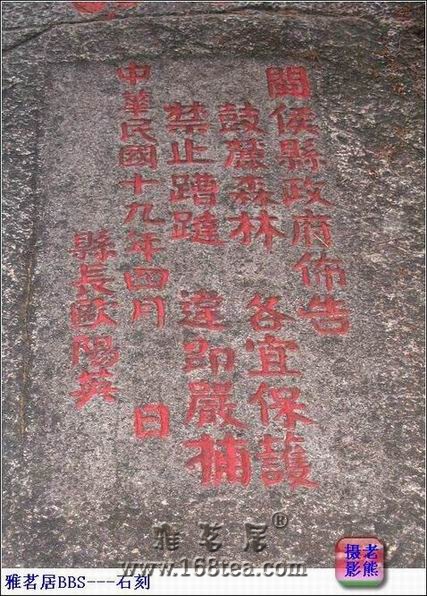 閩侯縣政府佈告
鼓麓森林 各宜保護
禁止蹧躂 違即嚴捕
中華民國十九年四月 日
縣長歐陽英
雅茗居®
www.168tea.com
雅茗居BBS---石刻
老熊
摄影